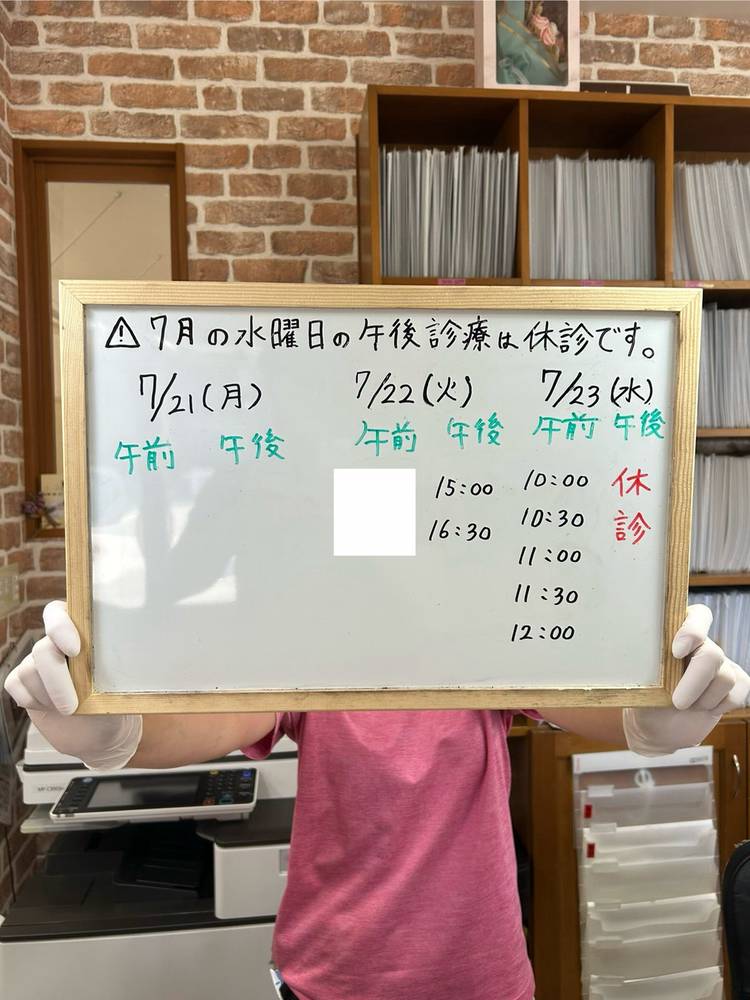 ⚠ 7月の水曜日の午後診療は休診です。
7/21(月) 7/22(火) 7/23(水)
午前 午後 午前 午後 午前 午後
15:00 10:00 休
16:30 10:30 診
11:00
11:30
12:00